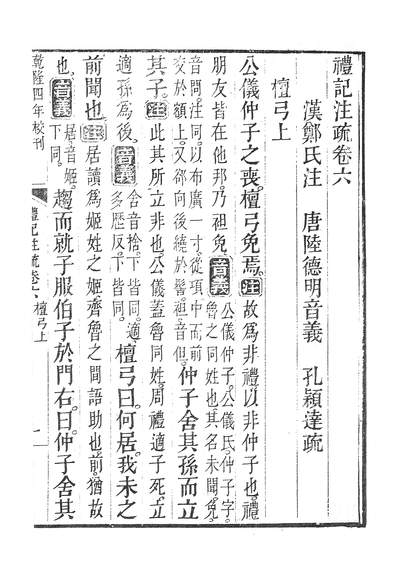 禮記注疏卷六
漢鄭氏注　唐陸德明音義　孔穎達疏
檀弓上
公儀仲子之喪。檀弓免焉。注故爲非禮。以非仲子也。禮
朋友皆在他邦。乃袒免。音義公儀仲子。公儀氏。仲子字。魯之同姓也。其名未聞。免。
音問。注同。以布廣一寸。從項中而前交於額上。又卻向後繞於髻。袒音但。仲子舍其孫而立
其子。注此其所立非也。公儀蓋魯同姓。周禮適子死。立
適孫爲後。音義舍音捨。下皆同。適多歷反。下皆同。檀弓曰。何居。我未之
前聞也。注居讀爲姬姓之姬。齊魯之間語助也。前。猶故
也。音義居音姬。下同。趨而就子服伯子於門右曰。仲子舍其
乾隆四年校刊　禮記注疏卷六　檀弓上　一